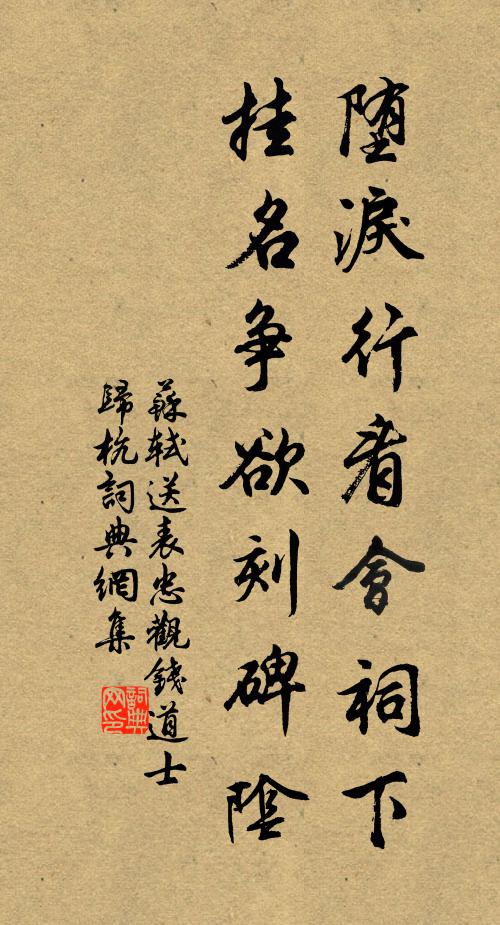 堕淚行看會祠下
挂名争欲刻碑陰
蘇軾送表忠觀錢道士
歸杭詞典網集
詞典网印